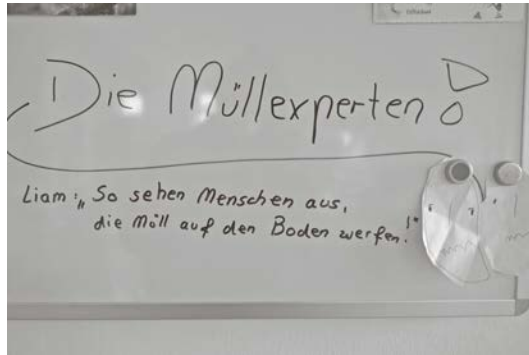 Die Müllexperten!
Liam: „So sehen Menschen aus,
die Müll auf den Boden werfen!"